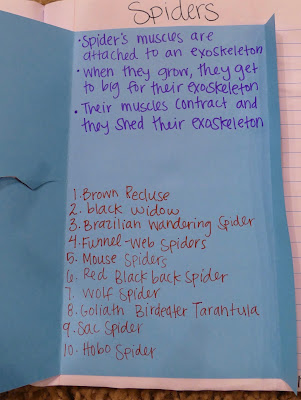 Spiders
• Spider's muscles are
attached to an exoskeleton
• When they grow, they get
to big for their exoskeleton
• Their muscles contract and
they shed their exoskeleton
1. Brown Recluse
2. black widow
3. Brazilian Wandering Spider
4. Funnel-Web Spiders
5. Mouse Spiders
6. Red Black back Spider
7. Wolf Spider
8. Goliath Birdeater Tarantula
9. Sac Spider
10. Hobo Spider